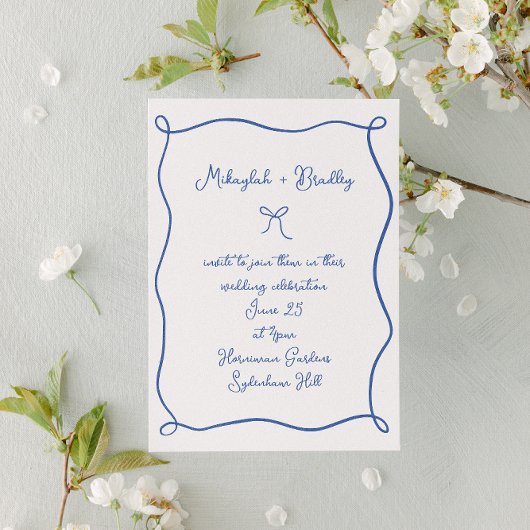 Mikaylah + Bradley
invite to join them in their
wedding celebration
June 25
at 4pm
Horniman Gardens
Sydenham Hill